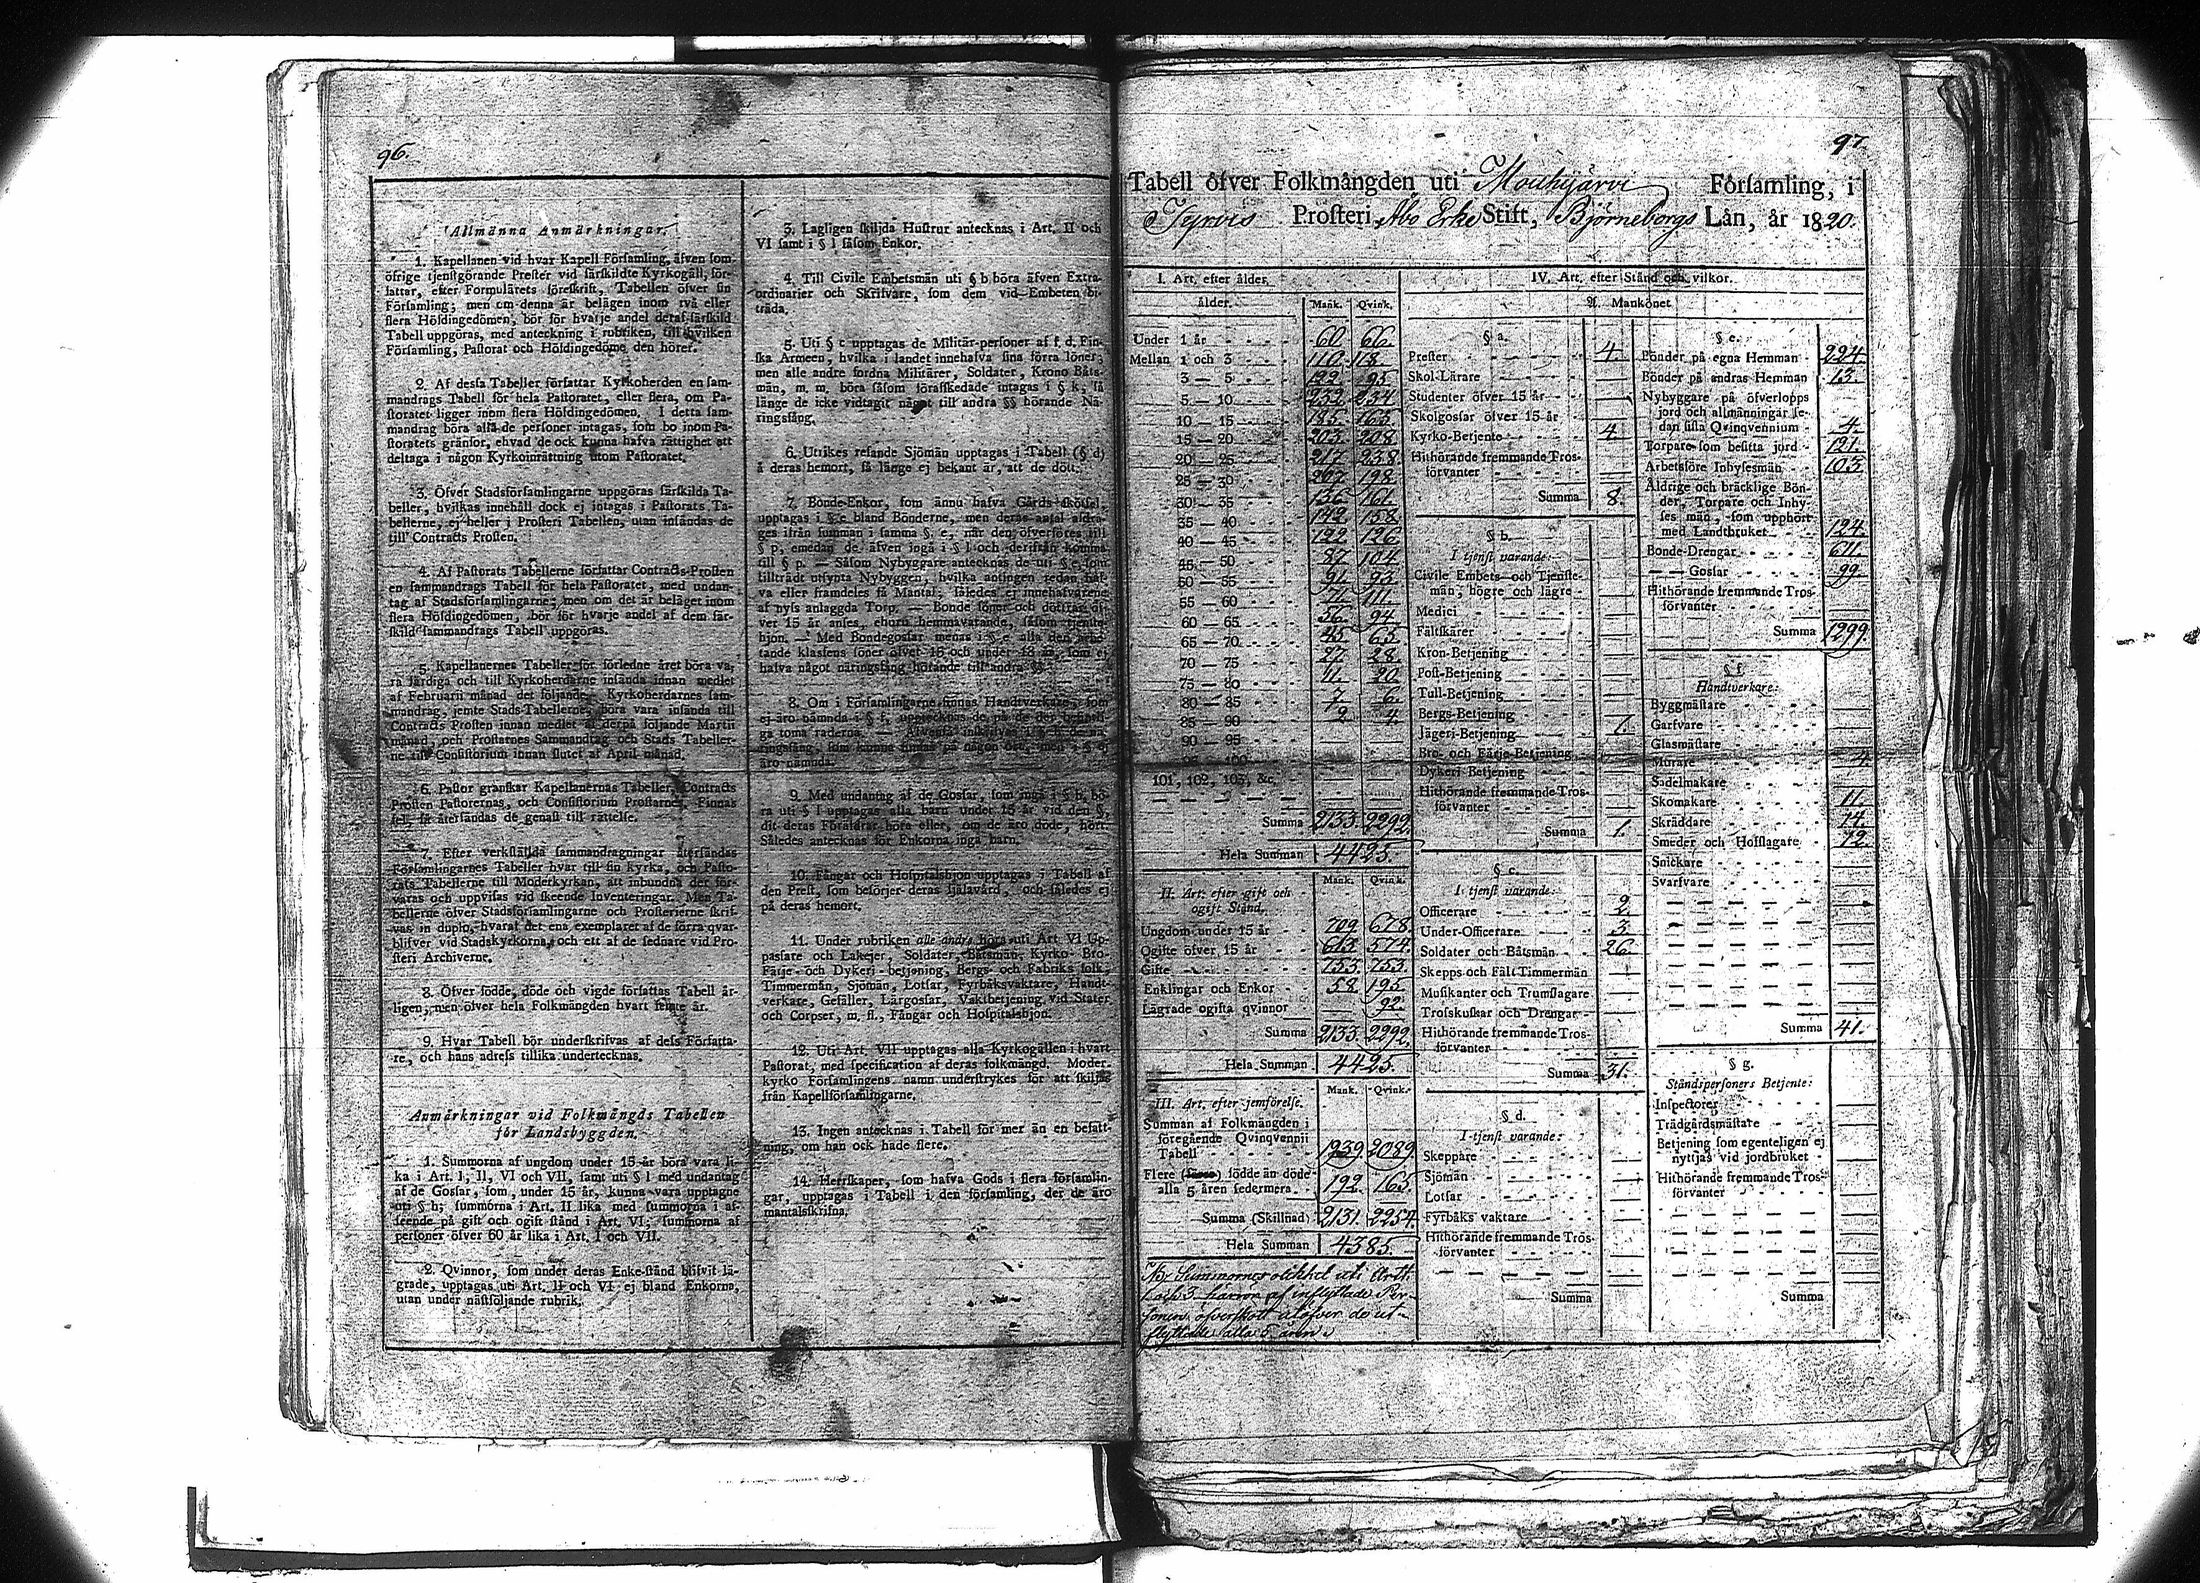 96.
Allmänna Anmärkningar.
1. Kapellanen vid hvar Kapell Församling, äfven som
öfrige tjenstgörande Prester vid särskildte Kyrkogäll, för-
fattar, efter Formulärets föreskrift, Tabellen öfver sin
Församling; men om denna är belägen inom två eller
flera Höfdingedömen, bör för hvarje andel deraf särskild
Tabell uppgöras, med anteckning i rubriken, till hvilken
Församling, Pastorat och Höfdingedöme den hörer.
2. Af dessa Tabeller författar Kyrkoherden en sam-
mandrags Tabell för hela Pastoratet, eller flera, om Pa-
storatet ligger inom flera Höfdingedömen. I detta sam-
mandrag böra alla de personer intagas, som bo inom Pa-
storatets gränsor, ehvad de ock kunna hafva rättighet att
deltaga i någon Kyrkoinrättning utom Pastoratet.
3. Öfver Stadsförsamlingarne uppgöras särskilda Ta-
beller, hvilkas innehåll dock ej intagas i Pastorats Ta-
bellerne, ej heller i Prosteri Tabellen, utan insändas de
till Contracts Prosten.
4. Af Pastorats Tabellerne författar Contracts-Prosten
en sammandrags Tabell för hela Pastoratet, med undan-
tag af Stadsförsamlingarne; men om det är beläget inom
flera Höfdingedömen, bör för hvarje andel af dem sär-
skild sammandrags Tabell uppgöras.
5. Kapellanernes Tabeller för förledne året böra va-
ra färdiga och till Kyrkoherdarne insända innan medlet
af Februarii månad det följande. Kyrkoherdarnes sam-
mandrag, jemte Stads-Tabellerne, böra vara insända till
Contracts Prosten innan medlet af derpå följande Martii
månad, och Prostarnes Sammandrag och Stads Tabeller-
ne till Consistorium innan slutet af April månad.
6. Pastor granskar Kapellanernas Tabeller, Contracts
Prosten Pastorernas, och Consistorium Prostarnes. Finnas
fel, så återsändas de genast till rättelse.
7. Efter verkställda sammandragningar återsändas
Församlingarnes Tabeller hvar till sin kyrka, och Pasto-
rats Tabellerne till Moderkyrkan, att inbundna der för-
varas och uppvisas vid skeende Inventeringar. Men Ta-
bellerne öfver Stadsförsamlingarne och Prosterierne skrif-
vas in duplo, hvaraf det ena exemplaret af de förra qvar-
blifver vid Stadskyrkorna, och ett af de sednare vid Pro-
steri Archiverne.
8. Öfver födde, döde och vigde författas Tabell år-
ligen, men öfver hela Folkmängden hvart femte år.
9. Hvar Tabell bör underskrifvas af dess Författa-
re, och hans adress tillika undertecknas.
Anmärkningar vid Folkmängds Tabellen
för Landsbyggden.
1. Summorna af ungdom under 15 år böra vara li-
ka i Art. I, II, VI och VII, samt uti § l med undantag
af de Gossar, som, under 15 år, kunna vara upptagne
uti § h; summorna i Art. II lika med summorna i af-
seende på gift och ogift stånd i Art. VI; summorna af
personer öfver 60 år lika i Art. I och VII.
2. Qvinnor, som under deras Enke-stånd blifvit lä-
grade, upptagas uti Art. II och VI ej bland Enkorna,
utan under nästföljande rubrik.
3. Lagligen skiljda Hustrur antecknas i Art. II och
VI samt i § l såsom Enkor.
4. Till Civile Embetsmän uti § b böra äfven Extra-
ordinarier och Skrifvare, som dem vid Embeten bi-
träda.
5. Uti § c upptagas de Militär-personer af f. d. Fin-
ska Armeen, hvilka i landet innehafva sina förra löner;
men alle andre fordna Militärer, Soldater, Krono Båts-
män, m. m. böra såsom förafskedade intagas i § k, så
länge de icke vidtagit något till andra §§ hörande Nä-
ringsfång.
6. Utrikes resande Sjömän upptagas i Tabell (§ d)
å deras hemort, så länge ej bekant är, att de dött.
7. Bonde-Enkor, som ännu hafva Gårds-skötsel,
upptagas i § e bland Bönderne, men deras antal afdra-
ges ifrån summan i samma §. e, når den öfverföres till
§ p, emedan de äfven ingå i § l och derifrån komma
till § p. — Såsom Nybyggare antecknas de uti § e, som
tillträdt utsynta Nybyggen, hvilka antingen redan haf-
va eller framdeles få Mantal; således ej innehafvarene
af nyss anlaggda Torp. — Bonde söner och döttrar öf-
ver 15 år anses, ehuru hemmavarande, såsom tjenste-
hjon. — Med Bondegossar menas i § e alla den arbe-
tande klassens söner öfver 15 och under 18 år, som ej
hafva något näringsfång hörande till andra §§.
8. Om i Församlingarne finnas Handtverkare, som
ej äro nämnda i § f, upptecknas de på de der befintli-
ga toma raderna.
äro nämnda.
9. Med undantag af de Gossar, som ingå i § h, bö-
ra uti § l upptagas alla barn under 15 år vid den §,
dit deras Föräldrar höra eller, om de äro döde, hört.
Således antecknas för Enkorna inga barn.
10. Fångar och Hospitalshjon upptagas i Tabell af
den Prest, som besörjer deras själavård, och således ej
på deras hemort.
11. Under rubriken alle andra höra uti Art VI Up-
passare och Lakejer, Soldater, Båtsmän, Kyrko- Bro-
Färje- och Dykeri-betjening, Bergs- och Fabriks folk,
Timmermän, Sjömän, Lotsar, Fyrbåksvaktare, Handt-
verkare, Gesäller, Lärgossar, Vaktbetjening vid Stater
och Corpser, m. fl., Fångar och Hospitalshjon.
12. Uti Art. VII upptagas alla Kyrkogällen i hvart
Pastorat, med specification af deras folkmängd. Moder-
kyrko Församlingens namn understrykes för att skiljas
från Kapellförsamlingarne.
13. Ingen antecknas i Tabell för mer än en befatt-
ning, om han ock hade flere.
14. Herrskaper, som hafva Gods i flera församlin-
gar, upptagas i Tabell i den församling, der de äro
mantalsskrifna.
97.
Tabell öfver Folkmängden uti Mouhijärvi Församling, i
Tyrvis Prosteri Åbo Erke Stift, Björneborgs Län, år 1820.
I. Art. efter ålder.
ålder. Mank. Qvink.
Under 1 år 60. 66.
Mellan 1 och 3 110. 118.
3 — 5 122. 95.
5 — 10 232. 234.
10 — 15 185. 165.
15 — 20 203. 208.
20 — 25 217. 238.
25 — 30 207. 198.
30 — 35 136. 161.
35 — 40 142. 158.
40 — 45 122. 126.
45 — 50 87. 104.
50 — 55 91. 93.
55 — 60 111.
60 — 65 56. 94.
65 — 70 45. 65.
70 — 75 27. 28.
75 — 80 11. 20.
80 — 85 7. 6.
85 — 90 2. 4.
90 — 95
95 — 100
101, 102, 103, &c.
Summa 2133. 2292.
Hela Summan 4425.
II. Art. efter gift och
ogift Stånd. Mank. Qvink.
Ungdom under 15 år 709. 678.
Ogifte öfver 15 år 613. 574.
Gifte 753. 753.
Enklingar och Enkor 58. 195.
Lägrade ogifta qvinnor — 92.
Summa 2133. 2292.
Hela Summan 4425.
III. Art. efter jemförelse. Mank. Qvink.
Summan af Folkmängden i
föregående Qvinqvennii
Tabell 1939. 2089.
Flere födde än döde
alla 5 åren sedermera 192. 165.
Summa (Skillnad) 2131. 2254.
Hela Summan 4385.
Nb. Summornes olikhet uti Artt.
1 och 3. härrör af inflyttade Per-
soners öfverskott utöfver de ut-
flyttade alla 5 åren.
IV. Art. efter Stånd och vilkor.
A. Mankönet
§ a.
Prester 4.
Skol-Lärare
Studenter öfver 15 år
Skolgossar öfver 15 år
Kyrko-Betjente 4.
Hithörande fremmande Tros-
förvanter
Summa 8.
§ b.
I tjenst varande:
Civile Embets- och Tjenste-
män, högre och lägre
Medici
Fältskärer
Kron-Betjening
Post-Betjening
Tull-Betjening
Bergs-Betjening
Jägeri-Betjening 1.
Bro- och Färje-Betjening
Dykeri Betjening
Hithörande fremmande Tros-
förvanter
Summa 1.
§ c.
I tjenst varande:
Officerare 2.
Under-Officerare 3.
Soldater och Båtsmän 26.
Skepps och Fält Timmermän
Musikanter och Trumslagare
Trosskuskar och Drengar
Hithörande fremmande Tros-
förvanter
Summa 31.
§ d.
I tjenst varande:
Skeppare
Sjömän
Lotsar
Fyrbåks vaktare
Hithörande fremmande Tros-
förvanter
Summa
§ e.
Bönder på egna Hemman 224.
Bönder på andras Hemman 13.
Nybyggare på öfverlopps
jord och allmänningar se-
dan sista Qvinqvennium 4.
Torpare som besitta jord 121.
Arbetsföre Inhysesmän 103.
Åldrige och bräcklige Bön-
der, Torpare och Inhy-
ses män, som upphört
med Landtbruket 124.
Bonde-Drengar 611.
— — Gossar 99.
Hithörande fremmande Tros-
förvanter
Summa 1299.
§ f.
Handtverkare:
Byggmästare
Garfvare
Glasmästare
Murare 4.
Sadelmakare
Skomakare 11.
Skräddare 14.
Smeder och Hofslagare 12.
Snickare
Svarfvare
Summa 41.
§ g.
Ståndspersoners Betjente:
Inspectorer
Trädgårdsmästare
Betjening som egenteligen ej
nyttjas vid jordbruket
Hithörande fremmande Tros-
förvanter
Summa